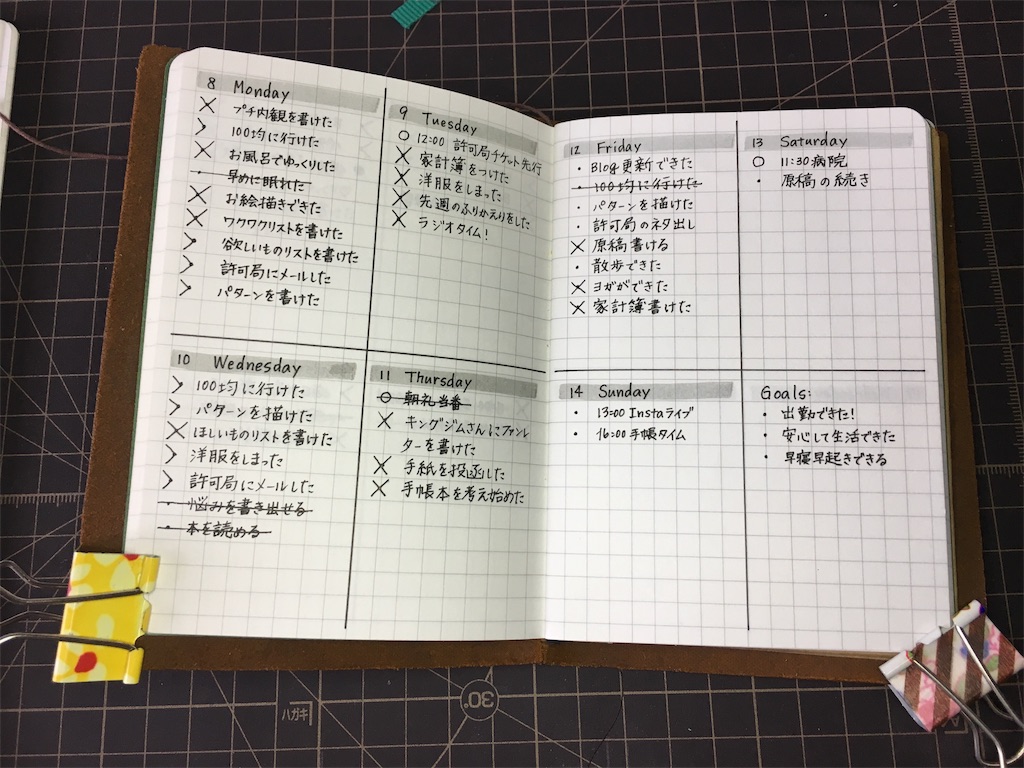 8 Monday
× プチ内観を書けた
> 100均に行けた
× お風呂でゆっくりした
· 早めに眠れた
× お絵描きできた
× ワクワクリストを書けた
> 欲しいものリストを書けた
> 許可局にメールした
> パターンを書けた
9 Tuesday
○ 12:00 許可局チケット先行
× 家計簿をつけた
× 洋服をしまった
× 先週のふりかえりをした
× ラジオタイム!
10 Wednesday
> 100均に行けた
> パターンを描けた
× ほしいものリストを書けた
> 洋服をしまった
> 許可局にメールした
· 悩みを書き出せる
· 本を読める
11 Thursday
○ 朝礼当番
× キングジムさんにファンレ
ターを書けた
× 手紙を投函した
× 手帳本を考え始めた
12 Friday
· Blog更新できた
· 100均に行けた
· パターンを描けた
· 許可局のネタ出し
× 原稿書ける
· 散歩できた
× ヨガができた
× 家計簿書けた
13 Saturday
○ 11:30病院
· 原稿の続き
14 Sunday
· 13:00 Instaライブ
· 16:00 手帳タイム
Goals:
· 出勤できた!
· 安心して生活できた
· 早寝早起きできる
ハガキ
30